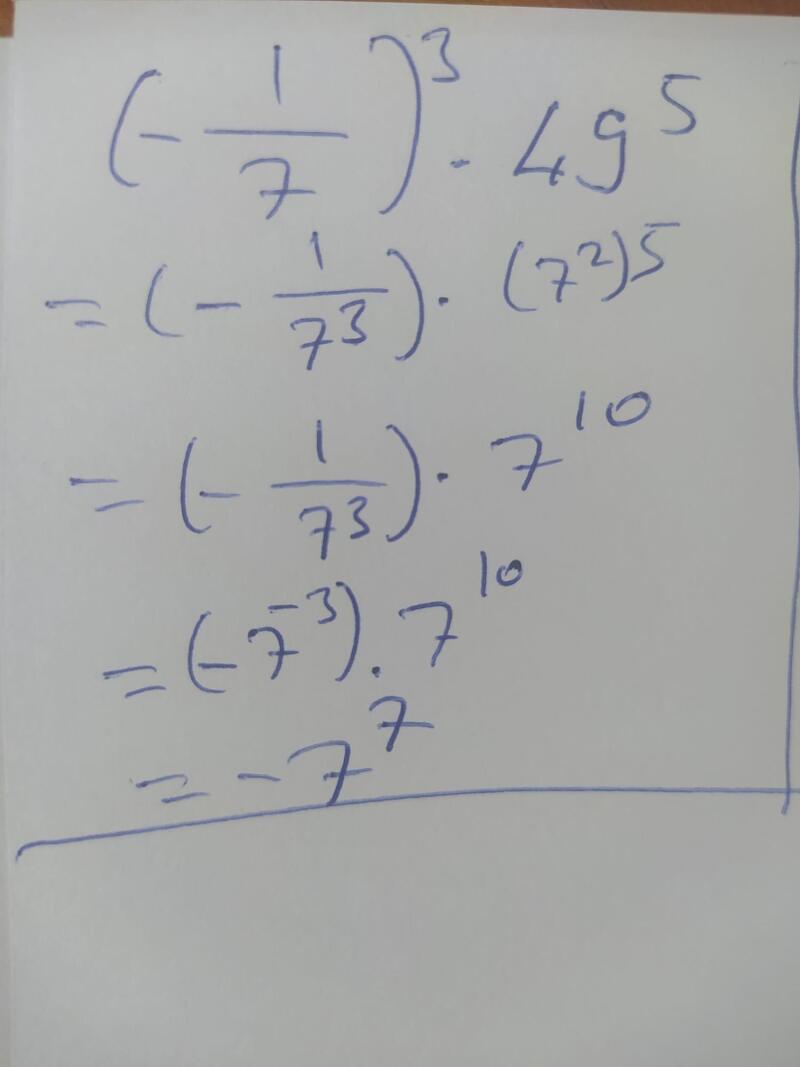 (-1/7)³ · 49⁵
= (-1/7³) · (7²)⁵
= (-1/7³) · 7¹⁰
= (-7⁻³) · 7¹⁰
= -7⁷